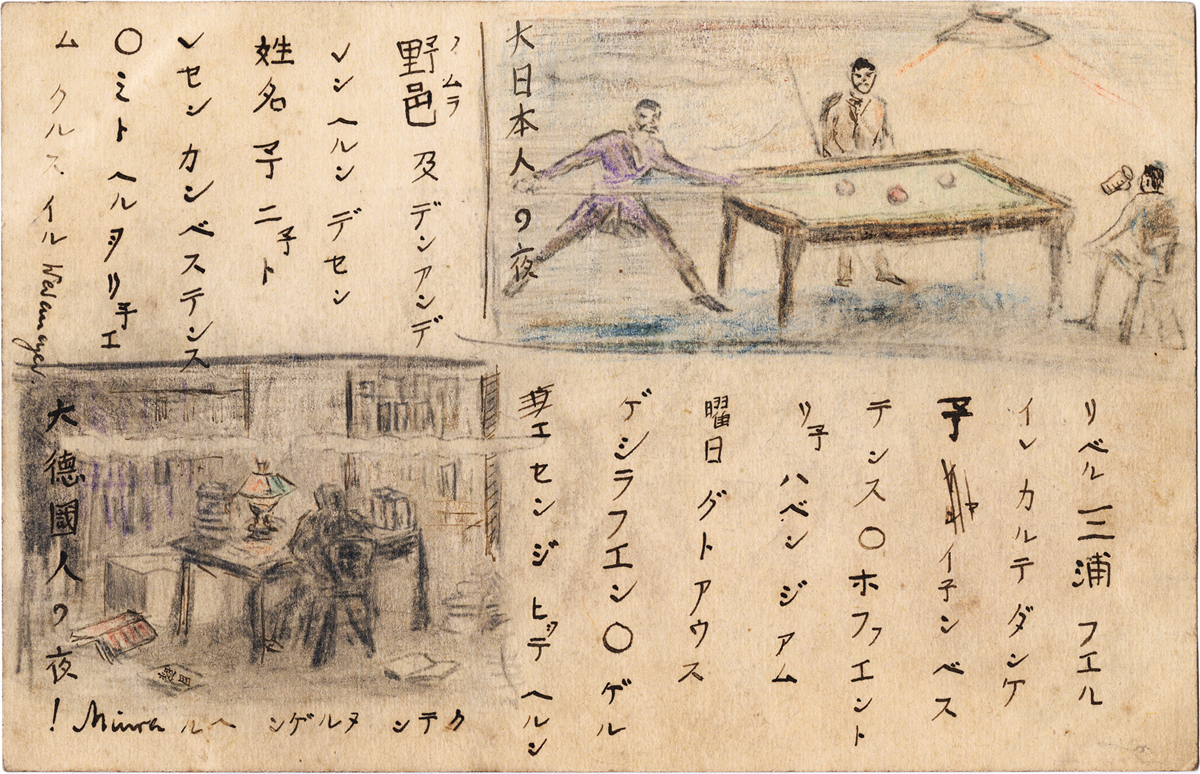 大日本人の夜
リベル 三浦 フエル
イレ カルテ ダンケ
子 イ子ン ベス
テンス〇ホフエント
リ子 ハベン ジ アム
曜日 グト アウス
ゲシラフエン〇ゲル
エセン ジ ビッテ ヘルン
クテン ヌルゲン ヘル Miwa !
ノムラ
野邑 及 デン アンデ
レン ヘルン デセン
姓名 子 ニ子ト
レセン カン ベステンス
〇ミト ヘルヲリ子エ
ム クルス、イル
大德國人の夜